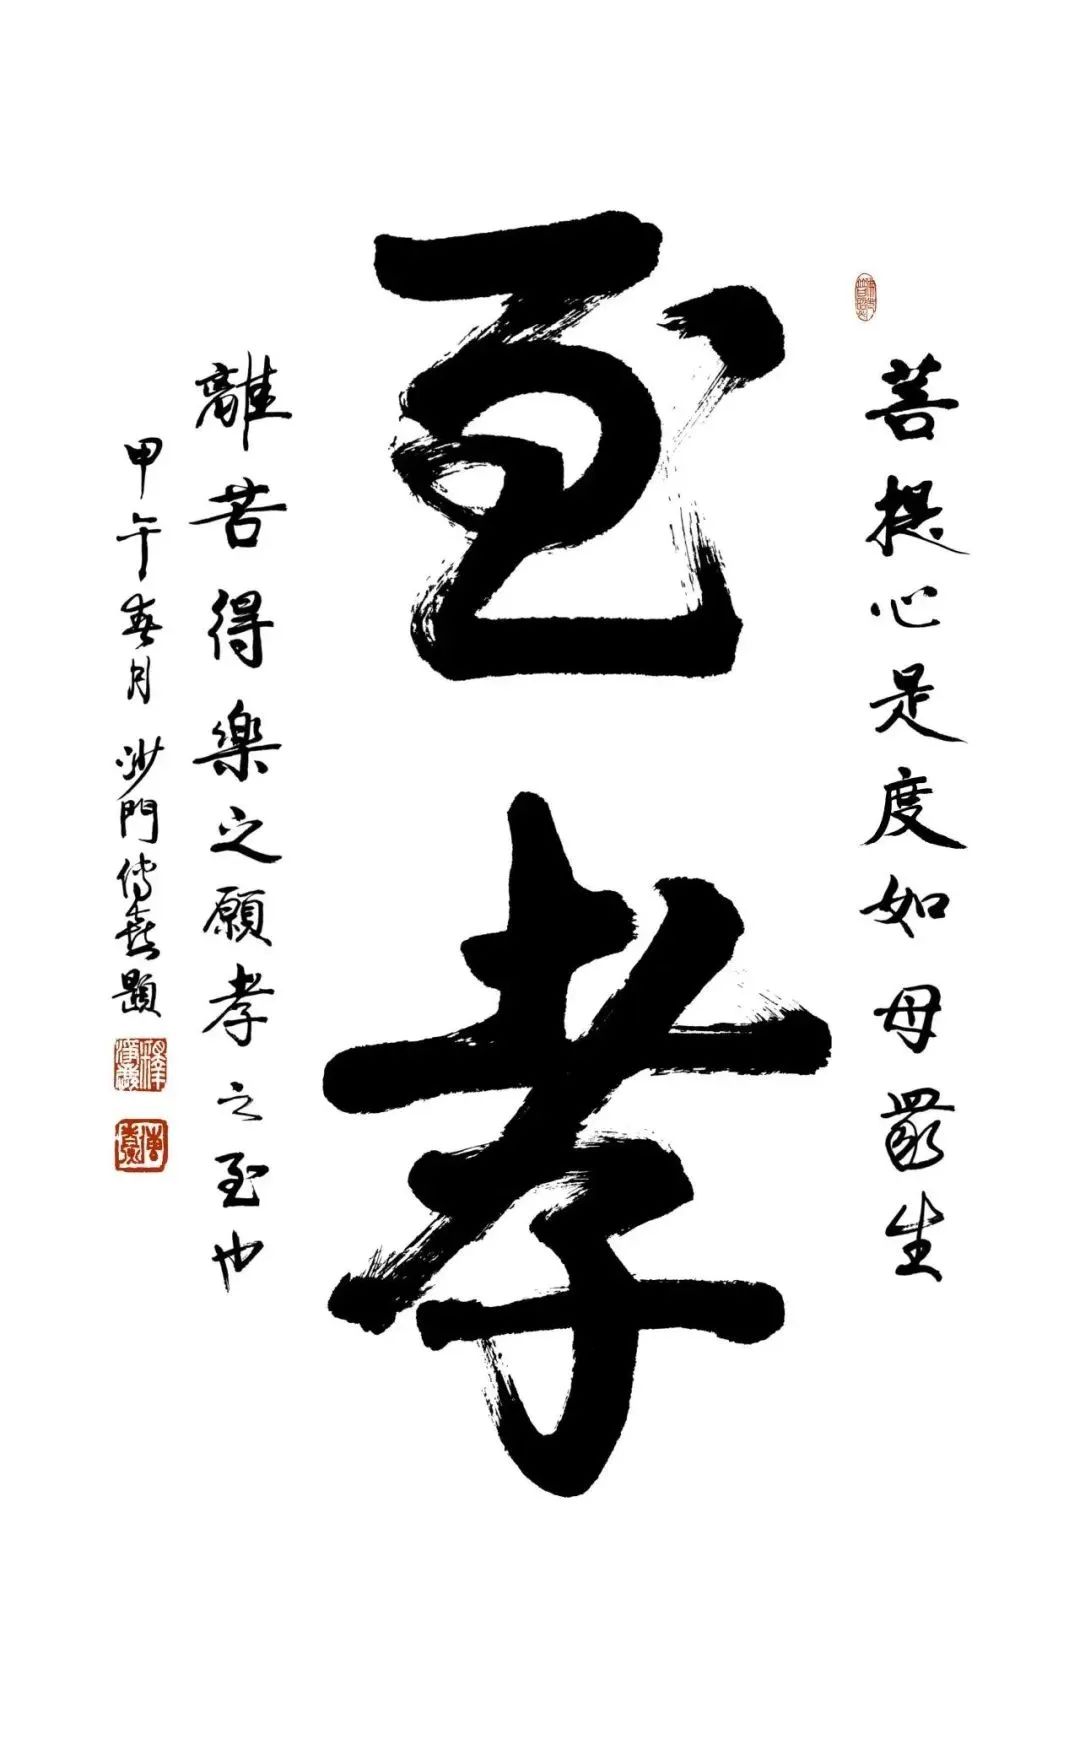 至孝
菩提心是度如母眾生
離苦得樂之願孝之至也
甲午春月沙門傳喜題